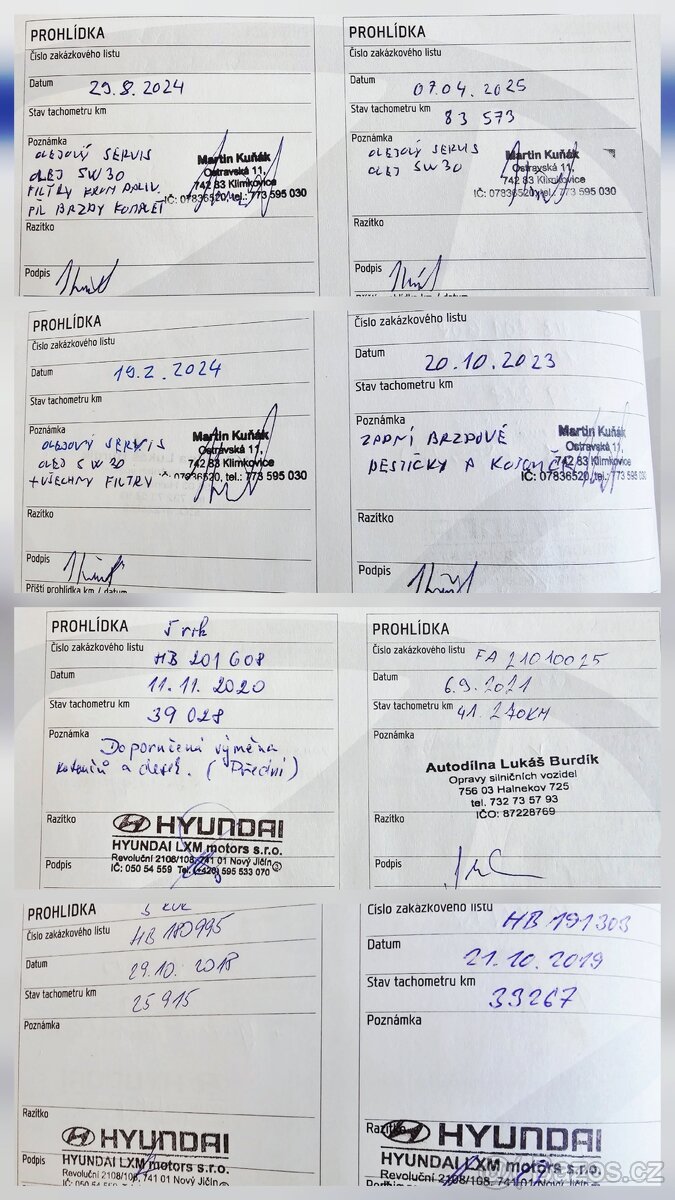 PROHLÍDKA
Číslo zakázkového listu
Datum 29.8.2024
Stav tachometru km
Poznámka
OLEJOVÝ SERVIS
OLEJ 5W30
FILTRY KROM PALIV.
PŘ. BRZDY KOMPLET
Martin Kuňák
Ostravská 11,
742 83 Klimkovice
IČ: 07836520, tel.: 773 595 030
Razítko
Podpis
PROHLÍDKA
Číslo zakázkového listu
Datum 07.04.2025
Stav tachometru km 83 573
Poznámka
OLEJOVÝ SERVIS
OLEJ 5W30
Martin Kuňák
Ostravská 11,
742 83 Klimkovice
IČ: 07836520, tel.: 773 595 030
Razítko
Podpis
PROHLÍDKA
Číslo zakázkového listu
Datum 19.2.2024
Stav tachometru km
Poznámka
OLEJOVÝ SERVIS
OLEJ 5W30
+ VŠECHNY FILTRY
Martin Kuňák
Ostravská 11,
742 83 Klimkovice
07836520, tel.: 773 595 030
Razítko
Podpis
Příští prohlídka km / datum
Číslo zakázkového listu
Datum 20.10.2023
Stav tachometru km
Poznámka
ZADNÍ BRZDOVÉ
DESTIČKY A KOTOUČE
Martin Kuňák
Ostravská 11,
742 83 Klimkovice
IČ: 07836520, tel.: 773 595 030
Razítko
Podpis
PROHLÍDKA 5 rok
Číslo zakázkového listu HB 201608
Datum 11.11.2020
Stav tachometru km 39 028
Poznámka
Doporučená výměna
kotoučů a desek. (Přední)
Razítko
HYUNDAI
HYUNDAI LXM motors s.r.o.
Revoluční 2108/108, 741 01 Nový Jičín
IČ: 050 54 559 Tel. (+420) 595 533 070
Podpis
PROHLÍDKA
Číslo zakázkového listu FA 21010025
Datum 6.9.2021
Stav tachometru km 41.270KM
Poznámka
Autodílna Lukáš Burdík
Opravy silničních vozidel
756 03 Halenkov 725
tel. 732 73 57 93
IČO: 87228769
Razítko
Podpis
PROHLÍDKA 3 ROK
Číslo zakázkového listu HB 180995
Datum 29.10.2018
Stav tachometru km 25915
Poznámka
Razítko
HYUNDAI
Podpis HYUNDAI LXM motors s.r.o.
Revoluční 2108/108, 741 01 Nový Jičín
Číslo zakázkového listu HB 191303
Datum 21.10.2019
Stav tachometru km 33267
Poznámka
Razítko
HYUNDAI
HYUNDAI LXM motors s.r.o.
Podpis Revoluční 2108/108, 741 01